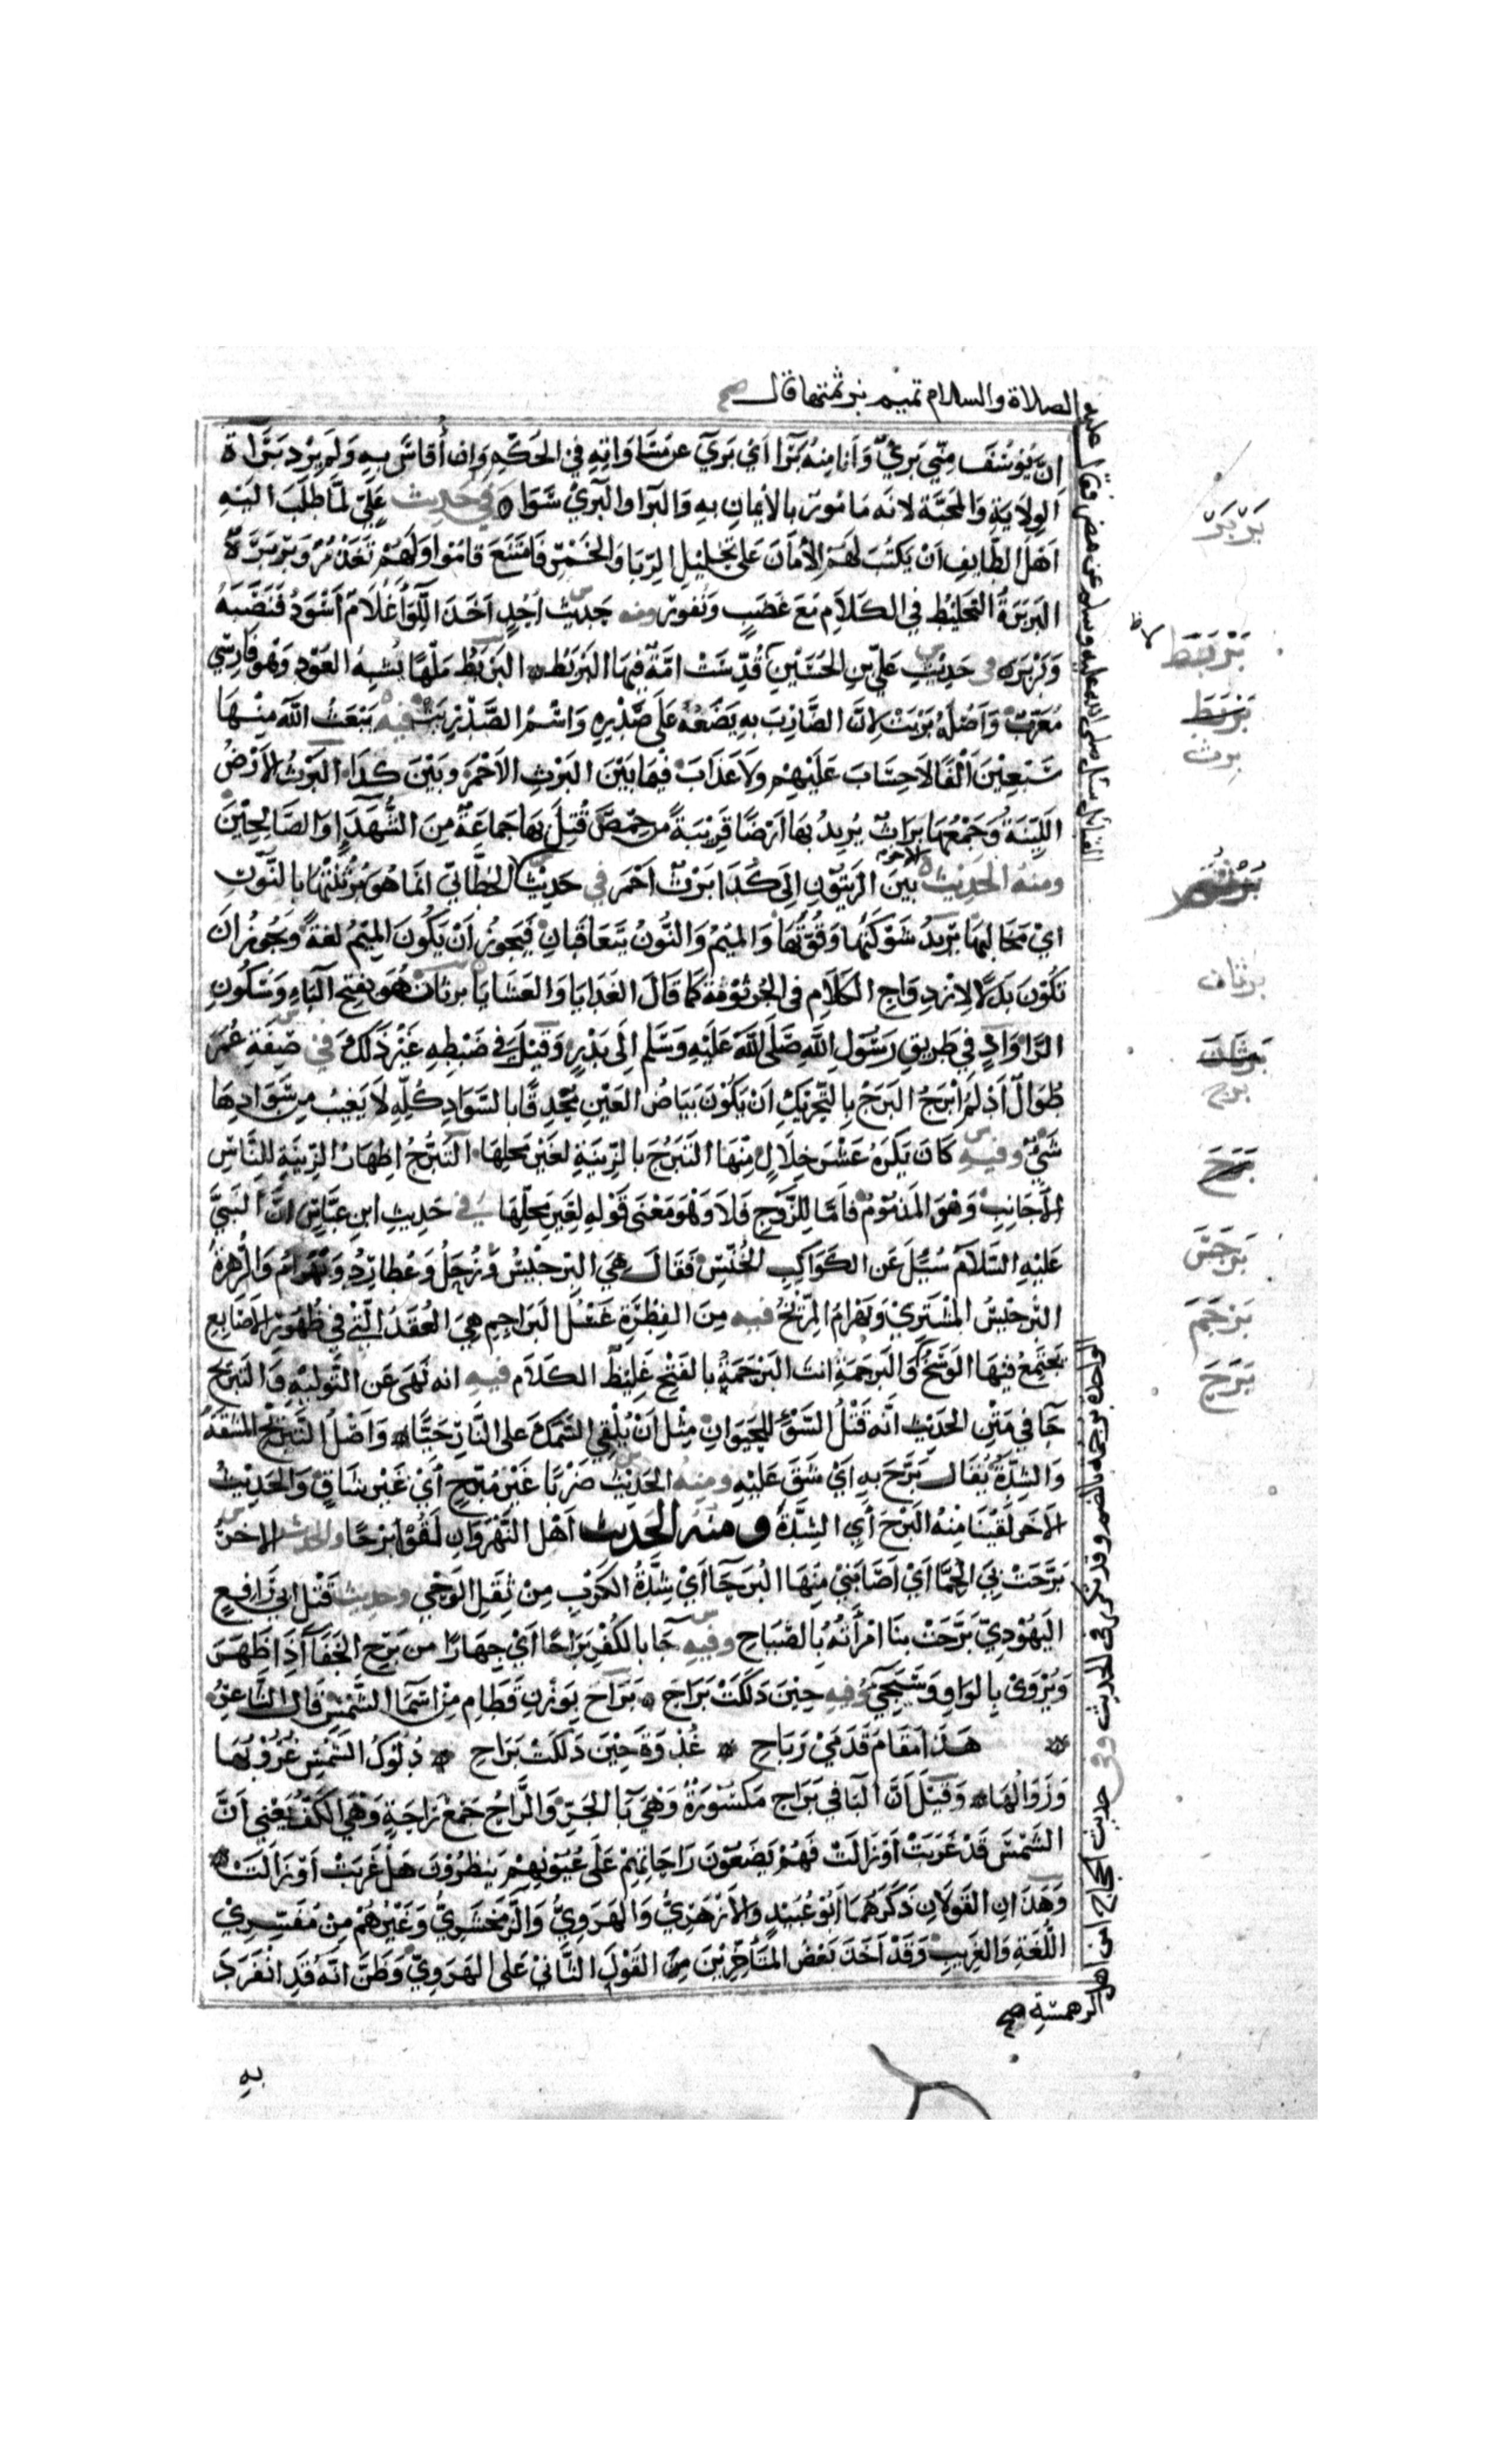 الصلاة والسلام تميم برثمتها قال صح
ان يوسف مني بريء وانا منه برا اي بريء عن مساواته في الحكم وان اقاس به ولم يرد براة
الولاية والمحبة لانه مامور بالايمان به والبرا والبريء سوا وفي حديث علي لما طلب اليه
اهل الطايف ان يكتب لهم الامان على تحليل الربا والخمر فامتنع قاموا ولهم تغذمر وبربرة
البربرة التخليط في الكلام مع غضب ونفور ومنه حديث احد اخذ اللوا غلام اسود فنصبه
وبربر في حديث علي بن الحسين قدست امة فيها البربط البربط ملهاة تشبه العود وهو فارسي
معرب واصله بربت لان الضارب به يضعه على صدره واسم الصدر بر فيه يبعث الله منها
سبعين الفا لا حساب عليهم ولا عذاب فيما بين البرث الاحمر وبين كذا البرث الارض
اللينة وجمعها براث يريد بها ارضا قريبة من حمص قتل بها جماعة من الشهدا والصالحين
ومنه الحديث الاخر بين الزيتون الى كذا برث احمر في حديث الخطابي انما هو برثنتها بالنون
اي مخالبها تريد شوكتها وقوتها والميم والنون يتعاقبان فيجوز ان يكون الميم لغة ويجوز ان
تكون بدلا لازدواج الكلام في الجرثومة كما قال الغدايا والعشايا برثان هو بفتح الباء وسكون
الرا واد في طريق رسول الله صلى الله عليه وسلم الى بدر وقيل في ضبطه غير ذلك في صفة عمر
طوال اذلم ابرج البرج بالتحريك ان يكون بياض العين محدقا بالسواد كله لا يغيب من سوادها
شيء وفيه كان يكره عشر خلال منها التبرج بالزينة لغير محلها التبرج اظهار الزينة للناس
الاجانب وهو المذموم فاما للزوج فلا وهو معنى قوله لغير محلها في حديث ابن عباس ان النبي
عليه السلام سئل عن الكواكب الخنس فقال هي البرجيس وزحل وعطارد وبهرام والزهرة
البرجيس المشتري وبهرام المريخ فيه من الفطرة غسل البراجم هي العقد التي في ظهور الاصابع
يجتمع فيها الوسخ والبرجمة انت البرجمة بالفتح غليظ الكلام فيه انه نهى عن التوليه والتبريح
جا في متن الحديث انه قتل السوء للحيوان مثل ان يلقي السمك على النار حيا واصل التبريح المشقة
والشدة يقال برح به اي شق عليه ومنه الحديث ضربا غير مبرح اي غير شاق والحديث
الاخر لقينا منه البرح اي الشدة ومنه الحديث اهل النهروان لقوا برحا والحديث الاخر
برحت بي الحما اي اصابني منها البرحا اي شدة الكرب من ثقل الوحي وحديث قتل ابي رافع
اليهودي برحت بنا امراته بالصياح وفيه جا بالكفر براحا اي جهارا من برح الخفا اذا ظهر
ويروى بالواو وسيجيء وفيه حين دلكت براح براح بوزن قطام من اسما الشمس قال الشاعر
هذا مقام قدمي رباح غدوة حين دلكت براح دلوك الشمس غروبها
وزوالها وقيل ان البا في براح مكسورة وهي با الجر والراح جمع راحة وهي الكف يعني ان
الشمس قد غربت او زالت فهم يضعون راحاتهم على عيونهم ينظرون هل غربت او زالت
وهذان القولان ذكرهما ابو عبيد والازهري والهروي والزمخشري وغيرهم من مفسري
اللغة والغريب وقد اخذ بعض المتاخرين من القول الثاني على الهروي وظن انه قد انفرد
به
القبائل سئل صلى الله عليه وسلم عن مضر فقال عليه
الواحدة برجمة بالضم وقد تكرر في الحديث وفي حديث الحجاج امن اهل
الرهمسة صح
بربر
بربط
بربط
برث
برثم
برثان
برثان
برج
برج
برجس
برجم
برح